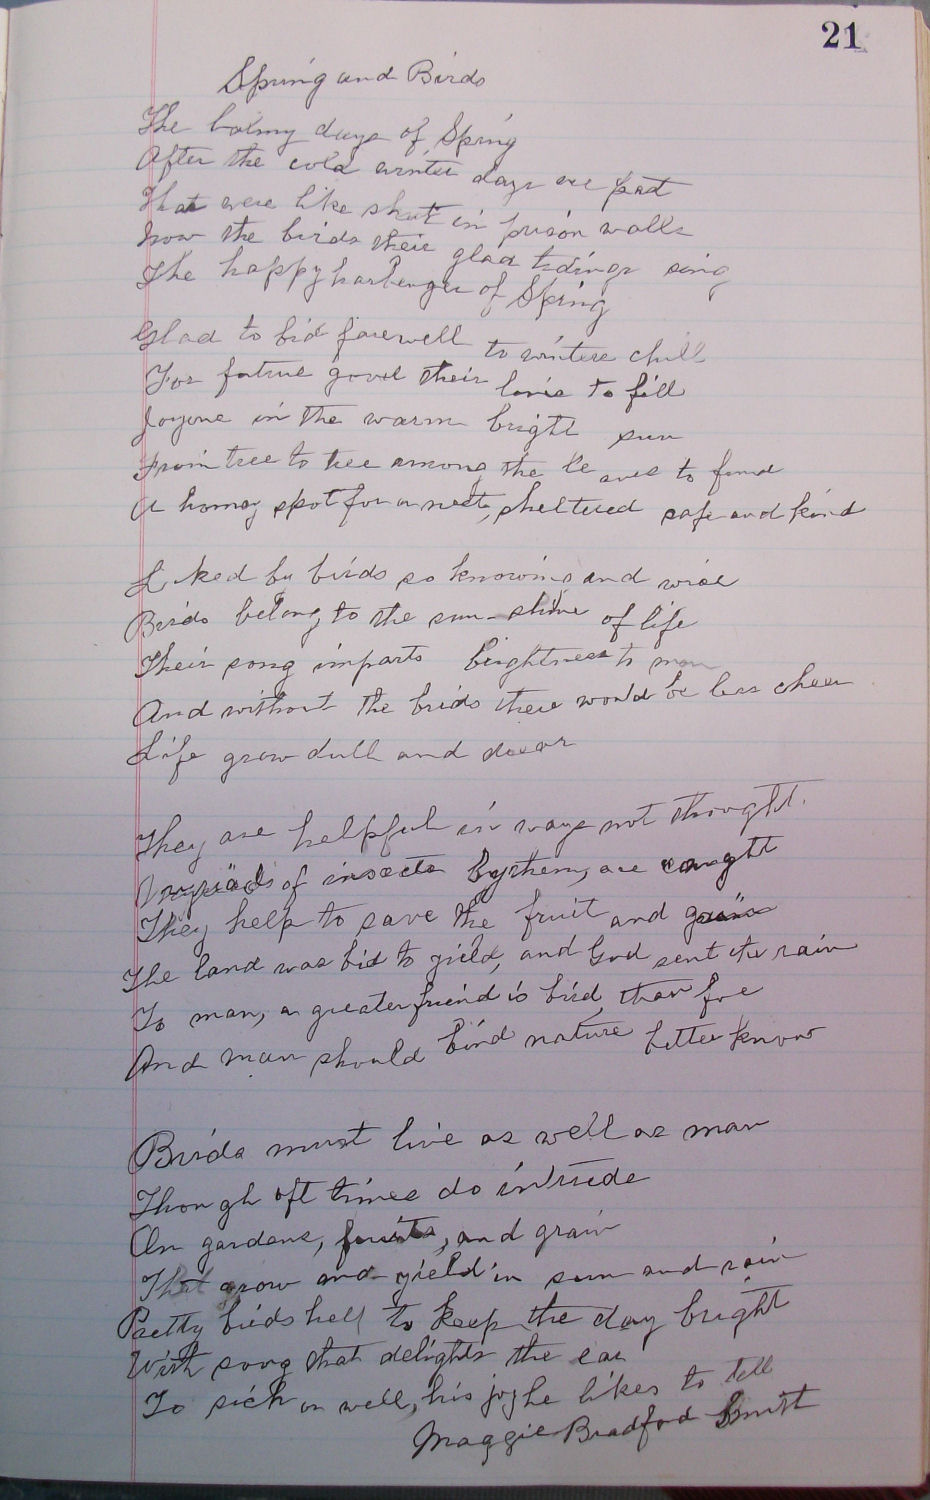 21
Spring and Birds
The balmy days of Spring
After the cold winter days are past
That were like shut in prison walls
Now the birds their glad tidings sing
The happy harbenger of Spring
Glad to bid farewell to winters chill
For future good their lives to fill
Joyous in the warm bright sun
From tree to tree among the leaves to find
A homey spot for a nest, sheltered safe and kind
Liked by birds so knowing and wise
Birds belong to the sun-shine of life
Their song imparts brightness to man
And without the birds there would be less cheer
Life grow dull and drear
They are helpful in ways not thought.
Myriads of insects by them, are caught
They help to save the fruit and grain
The land was bid to yield, and God sent the rain
To man, a greater friend is bird, than foe
And man should bind nature better know
Birds must live as well as man
Though oft times do intrude
On gardens, fruits, and grain
That grow and yield in sun and rain
Pretty birds help to keep the day bright
With song that delights the ear
To sick or well, his joy he likes to tell
Maggie Bradford Smith